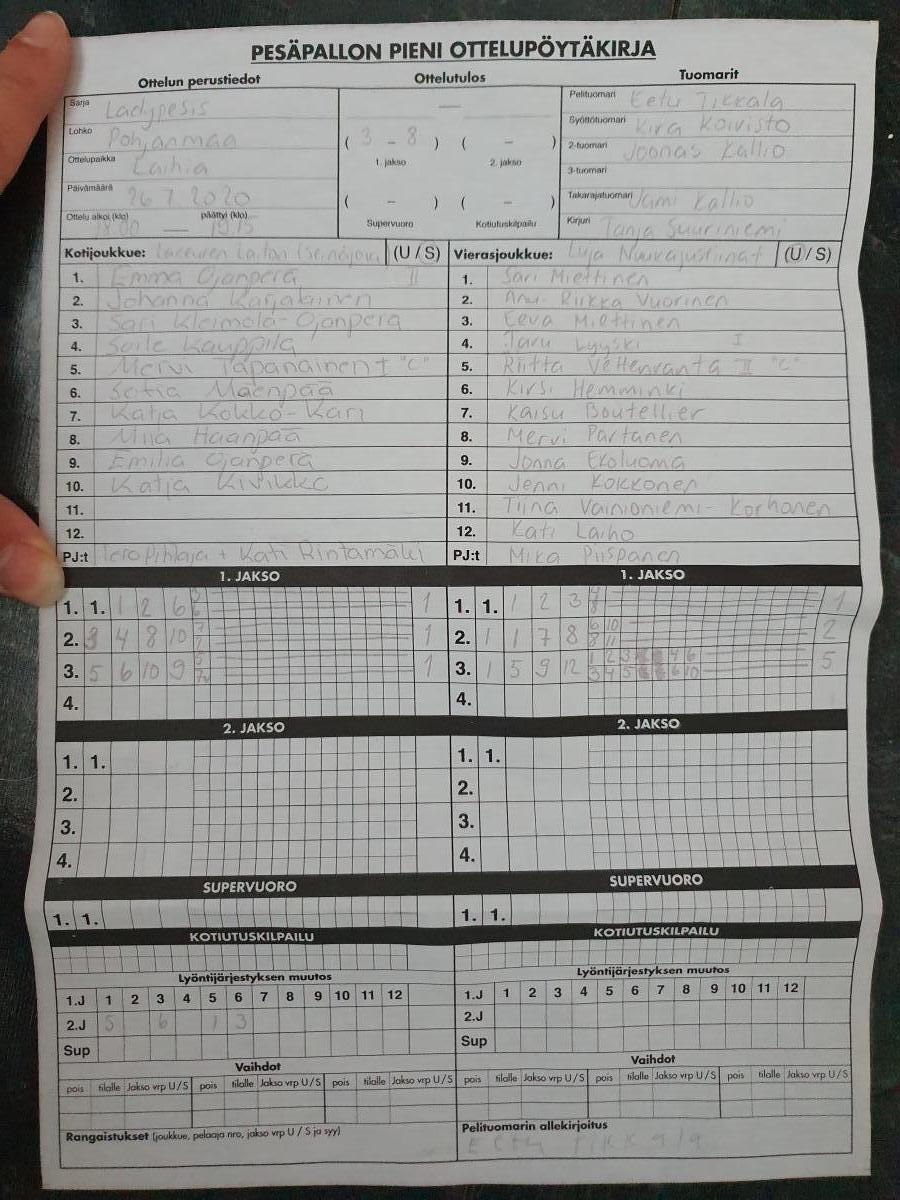 PESÄPALLON PIENI OTTELUPÖYTÄKIRJA
Ottelun perustiedot Ottelutulos Tuomarit
Sarja Ladypesis
Lohko Pohjanmaa
Ottelupaikka Laihia
Päivämäärä 26 7 2020
Ottelu alkoi (klo) päättyi (klo)
18.00 — 19.15
—
( 3 - 8 ) ( - )
1. jakso 2. jakso
( - ) ( - )
Supervuoro Kotiutuskilpailu
Pelituomari Eetu Tikkala
Syöttötuomari Kira Koivisto
2-tuomari Joonas Kallio
3-tuomari
Takarajatuomari Jami Kallio
Kirjuri Tanja Suuriniemi
Kotijoukkue: (U / S) Vierasjoukkue: Luja (U / S)
1. Emma Ojanperä II
2. Johanna Karjalainen
3. Sari Kleimola-Ojanperä
4. Soile Kauppila
5. Mervi Tapanainen I "C"
6. Sofia Mäenpää
7. Katja Kokko-Kari
8. Miia Haanpää
9. Emilia Ojanperä
10. Katja Kivikko
11.
12.
PJ:t Tero Pihlaja + Kati Rintamäki
1. Sari Miettinen
2. Anu-Riikka Vuorinen
3. Eeva Miettinen
4. Taru Lyyski I
5. Riitta Vettenranta II "C"
6. Kirsi Hemminki
7. Kaisu Boutellier
8. Mervi Partanen
9. Jonna Ekoluoma
10. Jenni Kokkonen
11. Tiina Vainioniemi-Korhonen
12. Kati Laiho
PJ:t Mika Piispanen
1. JAKSO 1. JAKSO
1. 1. 1 2 6 1
2. 3 4 8 10 1
3. 5 6 10 9 1
4.
1. 1. 1 2 3 1
2. 1 1 7 8 6 10 8 11 2
3. 1 5 9 12 5
4.
2. JAKSO 2. JAKSO
1. 1.
2.
3.
4.
1. 1.
2.
3.
4.
SUPERVUORO SUPERVUORO
1. 1. 1. 1.
KOTIUTUSKILPAILU KOTIUTUSKILPAILU
Lyöntijärjestyksen muutos Lyöntijärjestyksen muutos
1.J 1 2 3 4 5 6 7 8 9 10 11 12
2.J 5 6 1 3
Sup
1.J 1 2 3 4 5 6 7 8 9 10 11 12
2.J
Sup
Vaihdot Vaihdot
pois tilalle Jakso vrp U / S pois tilalle Jakso vrp U / S pois tilalle Jakso vrp U / S
pois tilalle Jakso vrp U / S pois tilalle Jakso vrp U / S pois tilalle Jakso vrp U / S
Rangaistukset (joukkue, pelaaja nro, jakso vrp U / S ja syy)
Pelituomarin allekirjoitus
Eetu Tikkala